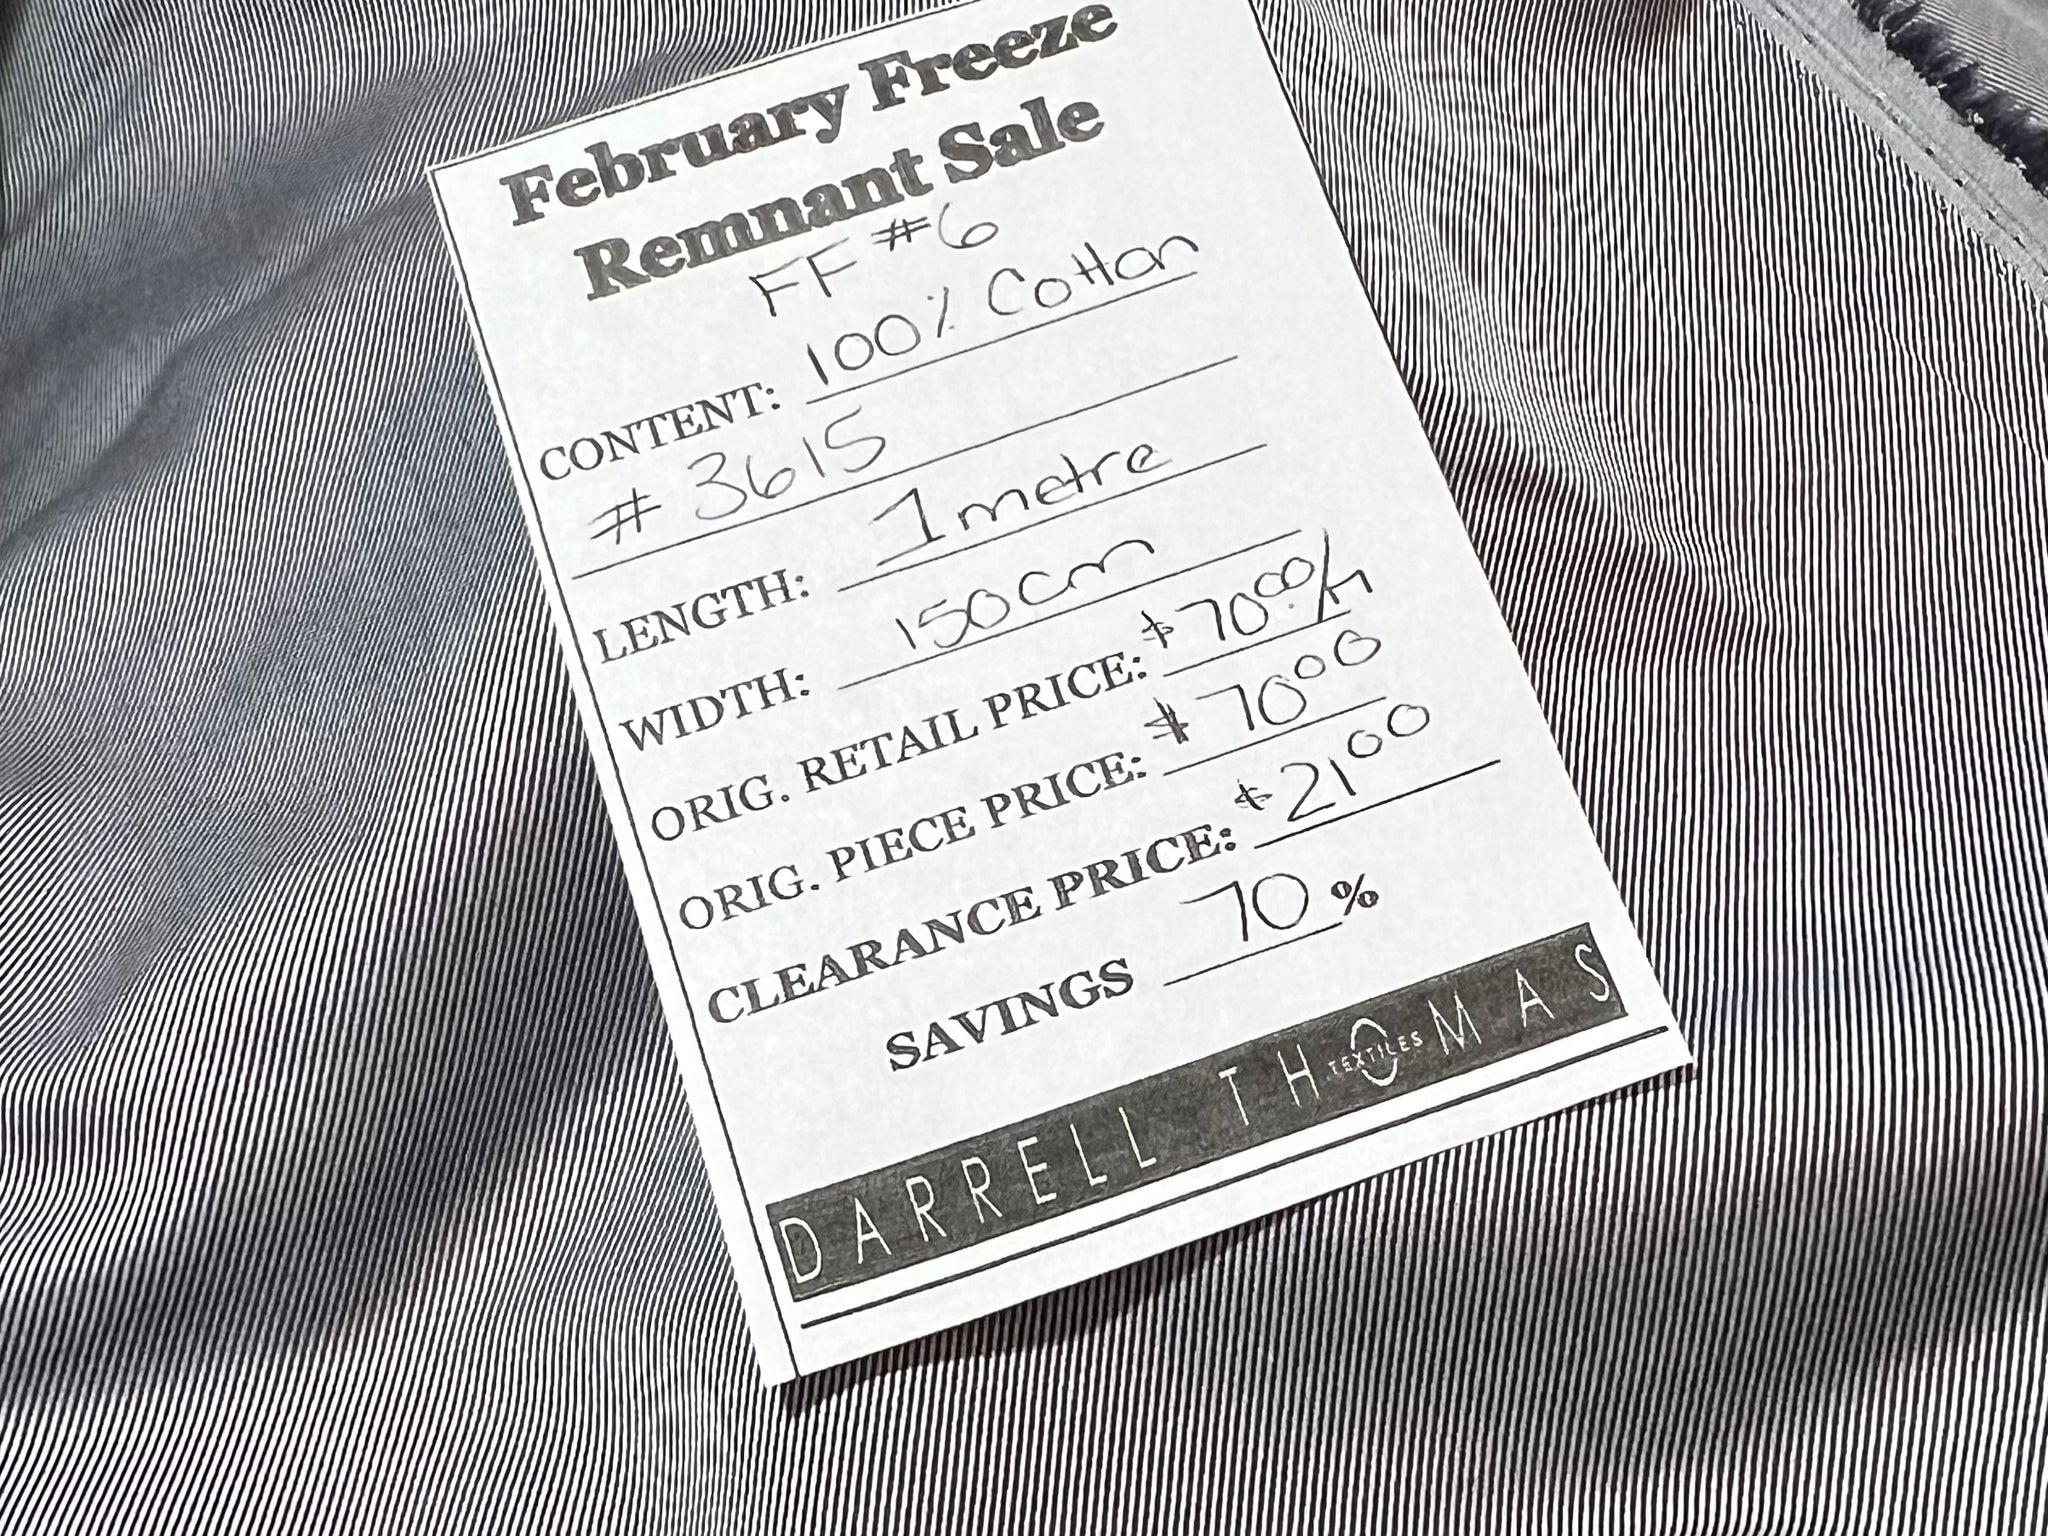 February Freeze
Remnant Sale
FF #6
CONTENT: 100% Cotton
# 3615
LENGTH: 1 metre
WIDTH: 150cm
ORIG. RETAIL PRICE: $70.00/m
ORIG. PIECE PRICE: $70 00
CLEARANCE PRICE: $21 00
SAVINGS 70 %
DARRELL THOMAS
TEXTILES